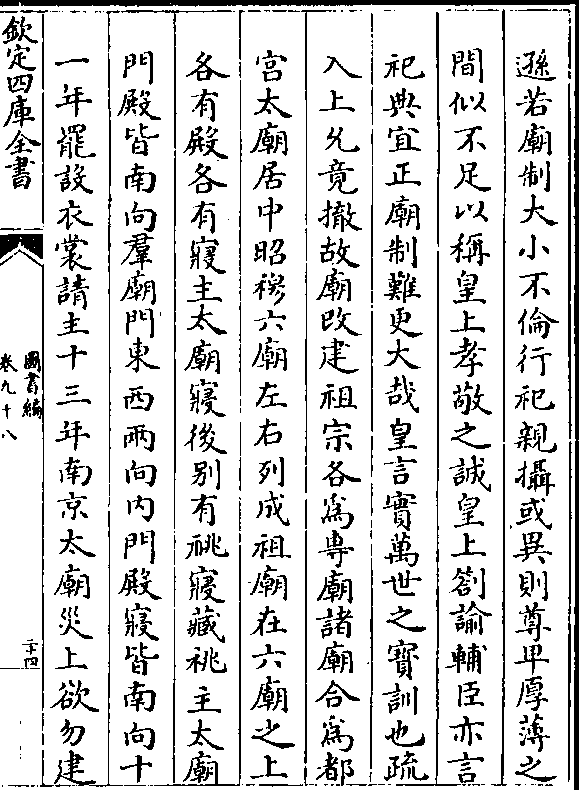 遜若廟制大小不倫行祀親攝或異則尊卑厚薄之
間似不足以稱皇上孝敬之誠皇上劄諭輔臣亦言
祀典宜正廟制難更大哉皇言實萬世之寳訓也疏
入上允竟撤故廟改建祖宗各為專廟諸廟合為都
宫太廟居中昭穆六廟左右列成祖廟在六廟之上
各有殿各有寢主太廟寢後别有祧寢藏祧主太廟
門殿皆南向羣廟門東西兩向内門殿寢皆南向十
一年罷設衣裳請主十三年南京太廟災上欲勿建
欽定四庫全書
圖書編
卷九十八
二十四